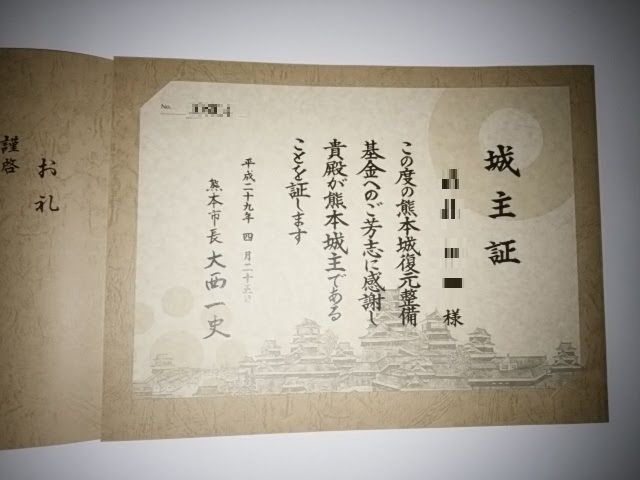 城主証
様
この度の熊本城復元整備
基金へのご芳志に感謝し
貴殿が熊本城主である
ことを証します
平成二十九年 四 月二十五日
熊本市長 大西一史
No.
お礼
謹啓